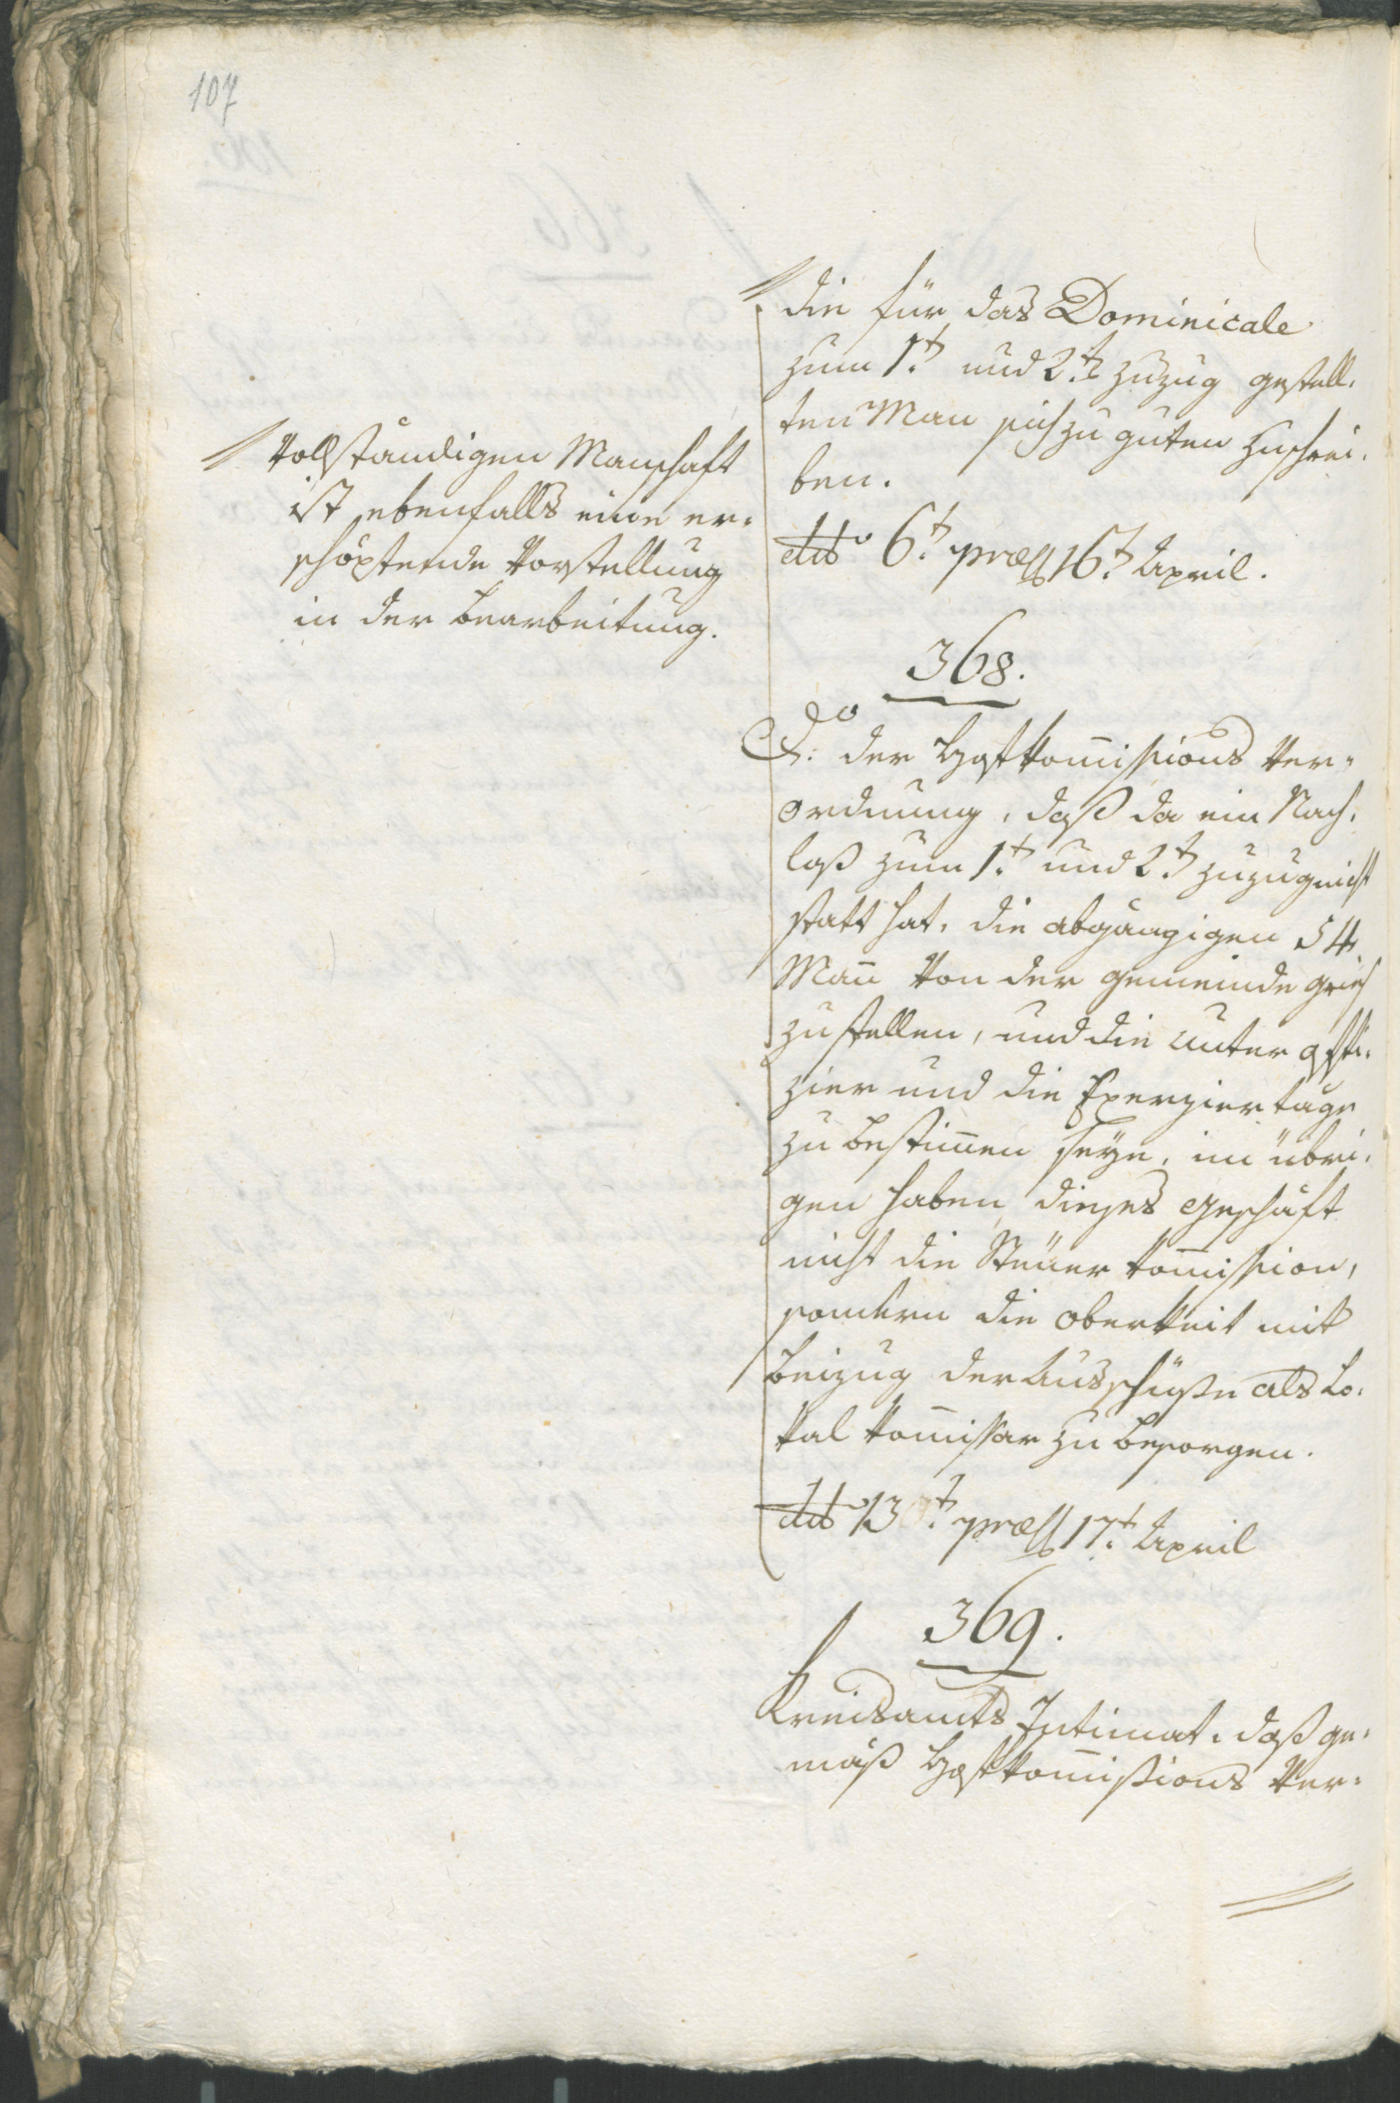 107
Vollständigen Manschaft
ist ebenfalls eine er-
schöpfende Vorstellung
in der bearbeitung.
die für das Dominicale
zum 1t. und 2t. zuzug gestell-
ten Man sich zu guten zuschrei-
ben.
ddto 6t. præss 16t. April.
368.
Do der Hofkom̄issions Ver-
ordnung, daß da ein Nach-
laß zum 1t. und 2t. zuzug nicht
statt hat, die abgängigen 54
Man̄ von der gemeinde gries
zustellen, und die Unteroffi-
zier und die Exerziertäge
zu bestim̄en seye, im übri-
gen haben dieses Geschäft
nicht die Steuer kom̄ission,
sondern die oberkeit mit
beizug der Ausschüße als Lo-
kal kom̄issar zu besorgen.
ddto 13t. præss 17t. April
369.
Kreisamts Intimat, daß ge-
mäß Hofkom̄issions Ver-